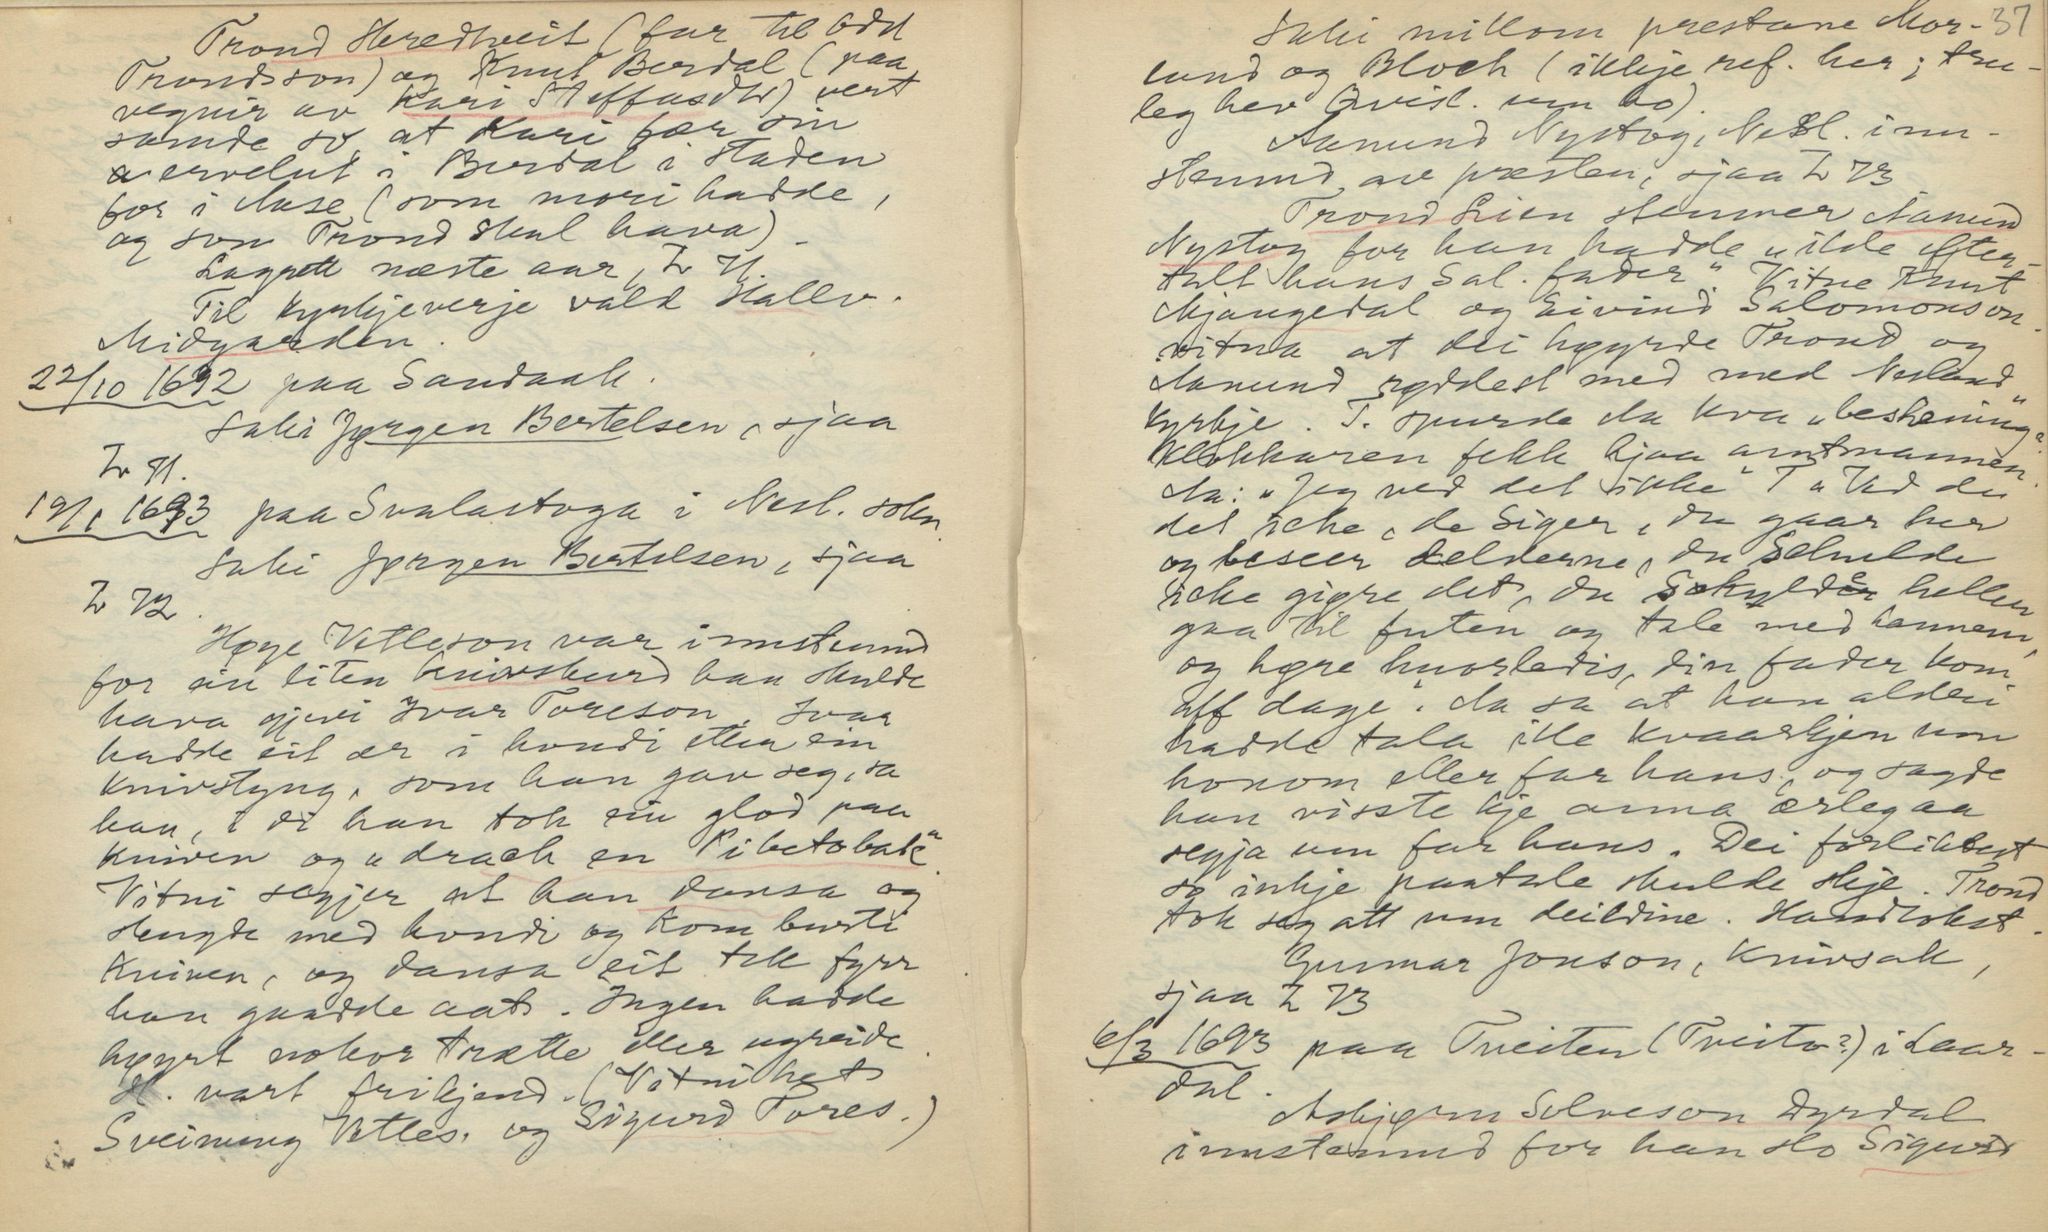 Trond Heredtveit (far til Odd
Trondsson) og Knut Berdal (paa
vegnir av Kari Steffasdtr) vert
samde so, at Kari fær sin
ervelut i Berdal i staden
for i Aase (som mori hadde,
og som Trond skal hava).
Lagrett næste aar, L 71.
Til kyrkjeverje vald Hallv.
Midgarden.
22/10 1692 paa Sandaak.
Saki Jørgen Bertelsen, sjaa
L 71.
19/1 1693 paa Svalastoga i Nesl. sokn
Saki Jørgen Bertelsen, sjaa
L 72.
Høge Vetleson var innstemnd
for ein liten knivskurd han skulde
hava gjevi Ivar Toreson. Ivar
hadde eit ær i hondi etter ein
knivstyng, som han gav seg, sa
han, i di han tok ein glod paa
kniven og „drach en Pibetobak“
Vitni segjer at han dansa og
slengde med hondi og kom burti
kniven, og dansa eit tak fyrr
han gaadde aat. Ingen hadde
høyrt nokor trætte eller ugreide.
H. vart frikjend. (Vitni het
Sveinung Vetles. og Sigurd Tores.)
37
Saki millom prestane Mor-
lund og Bloch (ikkje ref. her; tru-
leg hev Qvisl. um ho).
Aamund Nystog, Nesl. inn-
stemnd av presten, sjaa L 73
Trond Lien stemner Aamund
Nystog for han hadde „ilde efter-
talt hans Sal. fader“ Vitne Knut
Mjaugedal og Eivind Salomonson.
vitna at dei høyrde Trond og
Aamund røddest med med Nesland
kyrkje. T. spurde da kva „beskening“
klokkaren fekk hjaa amtmannen.
Aa: „Jeg ved det ikke“ T „Ved du
det icke, de Siger, du gaar her
og beseer delderne, du Schulde
icke giøre det, du Schylde heller
gaa til futen og tale med hannem,
og høre huorledis, din fader kom
aff dage“. Aa sa at han aldri
hadde tala ille kvaarkjen um
honom eller far hans, og sagde
han visste kje anna ærleg aa
segja um far hans. Dei forlikast
so inkje paatale skulde skje. Trond
tok seg att um deildine. Handtokst.
Gunnar Jonson, knivsak,
sjaa L 73
6/3 1693 paa Tveiten (Tveito?) i Laar-
dal.
Asbjørn Solveson Dyrdal
innstemnd for han slo Sigurd